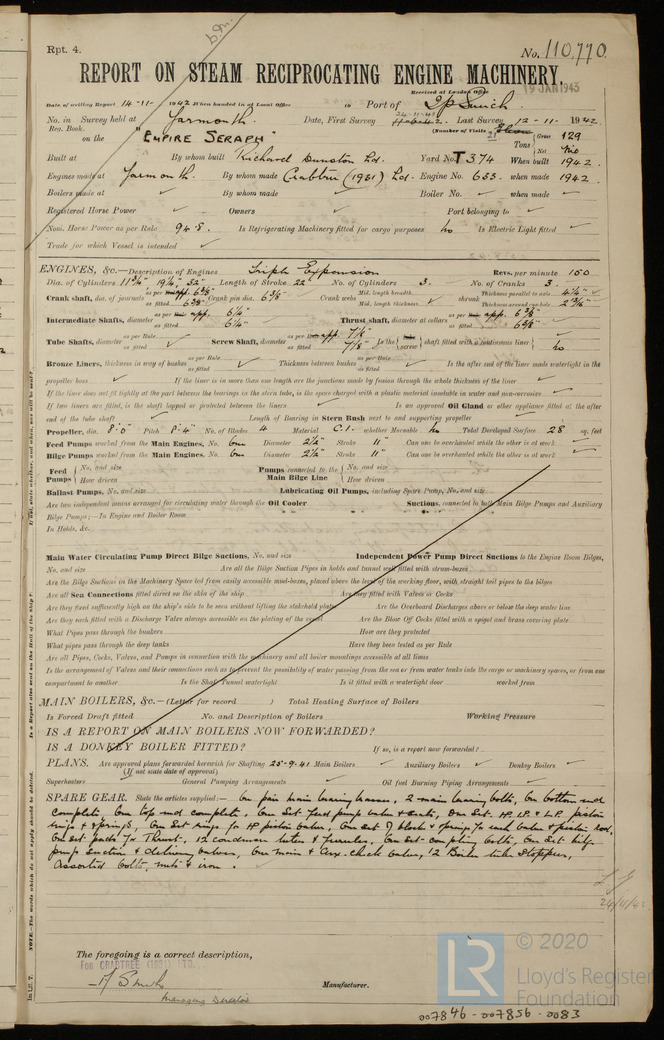 Rpt. 4.
No. 110,770
REPORT ON STEAM RECIPROCATING ENGINE MACHINERY.
Received at London Office 19 JAN 1943
Date of writing Report 14-11- 1942 When handed in at Local Office 19 Port of Ipswich.
No. in Survey held at Yarmouth Date, First Survey Last Survey 12-11-1942.
Reg. Book. (Number of Visits
on the "EMPIRE SERAPH" Tons Gross 129
Net Nil
Built at By whom built Richard Dunston Ld. Yard No. T374 When built 1942.
Engines made at Yarmouth. By whom made Crabtree (1931) Ld. Engine No. 633. when made 1942.
Boilers made at By whom made Boiler No. when made
Registered Horse Power Owners Port belonging to
Nom. Horse Power as per Rule 94.8. Is Refrigerating Machinery fitted for cargo purposes No Is Electric Light fitted
Trade for which Vessel is intended
ENGINES, &c.—Description of Engines Triple Expansion Revs. per minute 150
Dia. of Cylinders 11¾" 19¼" 32" Length of Stroke 22" No. of Cylinders 3. No. of Cranks 3.
Crank shaft, dia. of journals as per Rule app. 6⅜" as fitted 6⅜" Crank pin dia. 6⅜" Crank webs Mid. length breadth Mid. length thickness shrunk Thickness parallel to axis 4¼" Thickness around eye-hole
Intermediate Shafts, diameter as per Rule app. 6¼" as fitted 6¼" Thrust shaft, diameter at collars as per Rule app. 6⅜" as fitted 6⅜"
Tube Shafts, diameter as per Rule as fitted Screw Shaft, diameter as per Rule app. 7⅛" as fitted 7⅛" Is the tube screw shaft fitted with a continuous liner No
Bronze Liners, thickness in way of bushes as per Rule as fitted Thickness between bushes as per Rule as fitted Is the after end of the liner made watertight in the
propeller boss If the liner is in more than one length are the junctions made by fusion through the whole thickness of the liner
If the liner does not fit tightly at the part between the bearings in the stern tube, is the space charged with a plastic material insoluble in water and non-corrosive
If two liners are fitted, is the shaft lapped or protected between the liners Is an approved Oil Gland or other appliance fitted at the after
end of the tube shaft Length of Bearing in Stern Bush next to and supporting propeller
Propeller, dia. 8'-0" Pitch 8'-4" No. of Blades 4 Material C.I. whether Moveable No Total Developed Surface 28 sq. feet
Feed Pumps worked from the Main Engines, No. One Diameter 2½" Stroke 11" Can one be overhauled while the other is at work
Bilge Pumps worked from the Main Engines, No. One Diameter 2½" Stroke 11" Can one be overhauled while the other is at work
Feed Pumps No. and size How driven Pumps connected to the Main Bilge Line No. and size How driven
Ballast Pumps, No. and size Lubricating Oil Pumps, including Spare Pump, No. and size
Are two independent means arranged for circulating water through the Oil Cooler Suctions, connected to both Main Bilge Pumps and Auxiliary
Bilge Pumps;—In Engine and Boiler Room
In Holds, &c.
Main Water Circulating Pump Direct Bilge Suctions, No. and size Independent Power Pump Direct Suctions to the Engine Room Bilges,
No. and size Are all the Bilge Suction Pipes in holds and tunnel well fitted with strum-boxes
Are the Bilge Suctions in the Machinery Space led from easily accessible mud-boxes, placed above the level of the working floor, with straight tail pipes to the bilges
Are all Sea Connections fitted direct on the skin of the ship Are they fitted with Valves or Cocks
Are they fixed sufficiently high on the ship's side to be seen without lifting the stokehold plates Are the Overboard Discharges above or below the deep water line
Are they each fitted with a Discharge Valve always accessible on the plating of the vessel Are the Blow Off Cocks fitted with a spigot and brass covering plate
What Pipes pass through the bunkers How are they protected
What pipes pass through the deep tanks Have they been tested as per Rule
Are all Pipes, Cocks, Valves, and Pumps in connection with the machinery and all boiler mountings accessible at all times
Is the arrangement of Valves and their connections such as to prevent the possibility of water passing from the sea or from water tanks into the cargo or machinery spaces, or from one
compartment to another Is the Shaft Tunnel watertight Is it fitted with a watertight door worked from
MAIN BOILERS, &c.—(Letter for record ) Total Heating Surface of Boilers
Is Forced Draft fitted No. and Description of Boilers Working Pressure
IS A REPORT ON MAIN BOILERS NOW FORWARDED?
IS A DONKEY BOILER FITTED? If so, is a report now forwarded?
PLANS. Are approved plans forwarded herewith for Shafting 25-9-41 Main Boilers Auxiliary Boilers Donkey Boilers
(If not state date of approval)
Superheaters General Pumping Arrangements Oil fuel Burning Piping Arrangements
SPARE GEAR. State the articles supplied:— One pair main bearing brasses, 2 main bearing bolts, One bottom end
complete One top end complete, One Set feed pump valve & seats, One Set. H.P. I.P. & L.P. piston
rings & springs, One Set rings for HP piston valve, One set of block & springs for each valve & piston rod,
One set pads for Thrust, 12 condenser tubes & ferrules, One set coupling bolts, One Set bilge
pump suction & delivery valves, One main & Aux. check valve, 12 Boiler tube stoppers,
Assorted bolts, nuts & iron.
24/11/42
The foregoing is a correct description,
For CRABTREE (1931) LTD.
Managing Director Manufacturer.
NOTE.—The words which do not apply should be deleted.
© 2020
LR
Lloyd's Register
Foundation
007846-007856-0083